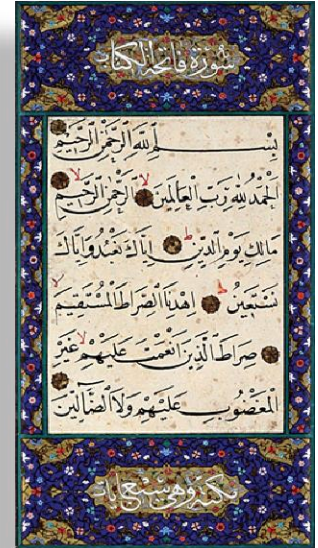 سُورَةُ فَاتِحَةِ الْكِتَابِ
بِسْمِ اللَّهِ الرَّحْمَٰنِ الرَّحِيمِ
الْحَمْدُ لِلَّهِ رَبِّ الْعَالَمِينَ لا الرَّحْمَٰنِ الرَّحِيمِ لا
مَالِكِ يَوْمِ الدِّينِ ط إِيَّاكَ نَعْبُدُ وَإِيَّاكَ
نَسْتَعِينُ ط اِهْدِنَا الصِّرَاطَ الْمُسْتَقِيمَ لا
صِرَاطَ الَّذِينَ أَنْعَمْتَ عَلَيْهِمْ لا غَيْرِ
الْمَغْضُوبِ عَلَيْهِمْ وَلَا الضَّالِّينَ
مكية وهي سبع آيات